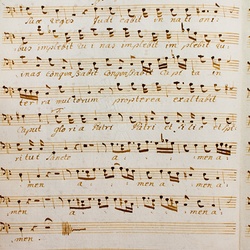 suæ Reges Judicabit in nati oni
bus implebit rui nas implebit implebit ru i
inas conquassabit conquassabit Capita in
terra multorum propterea exaltabit
Caput gloria Patri Patri et Filio et
ritui Sancto a a men a
men a a men a men a
men a a men.